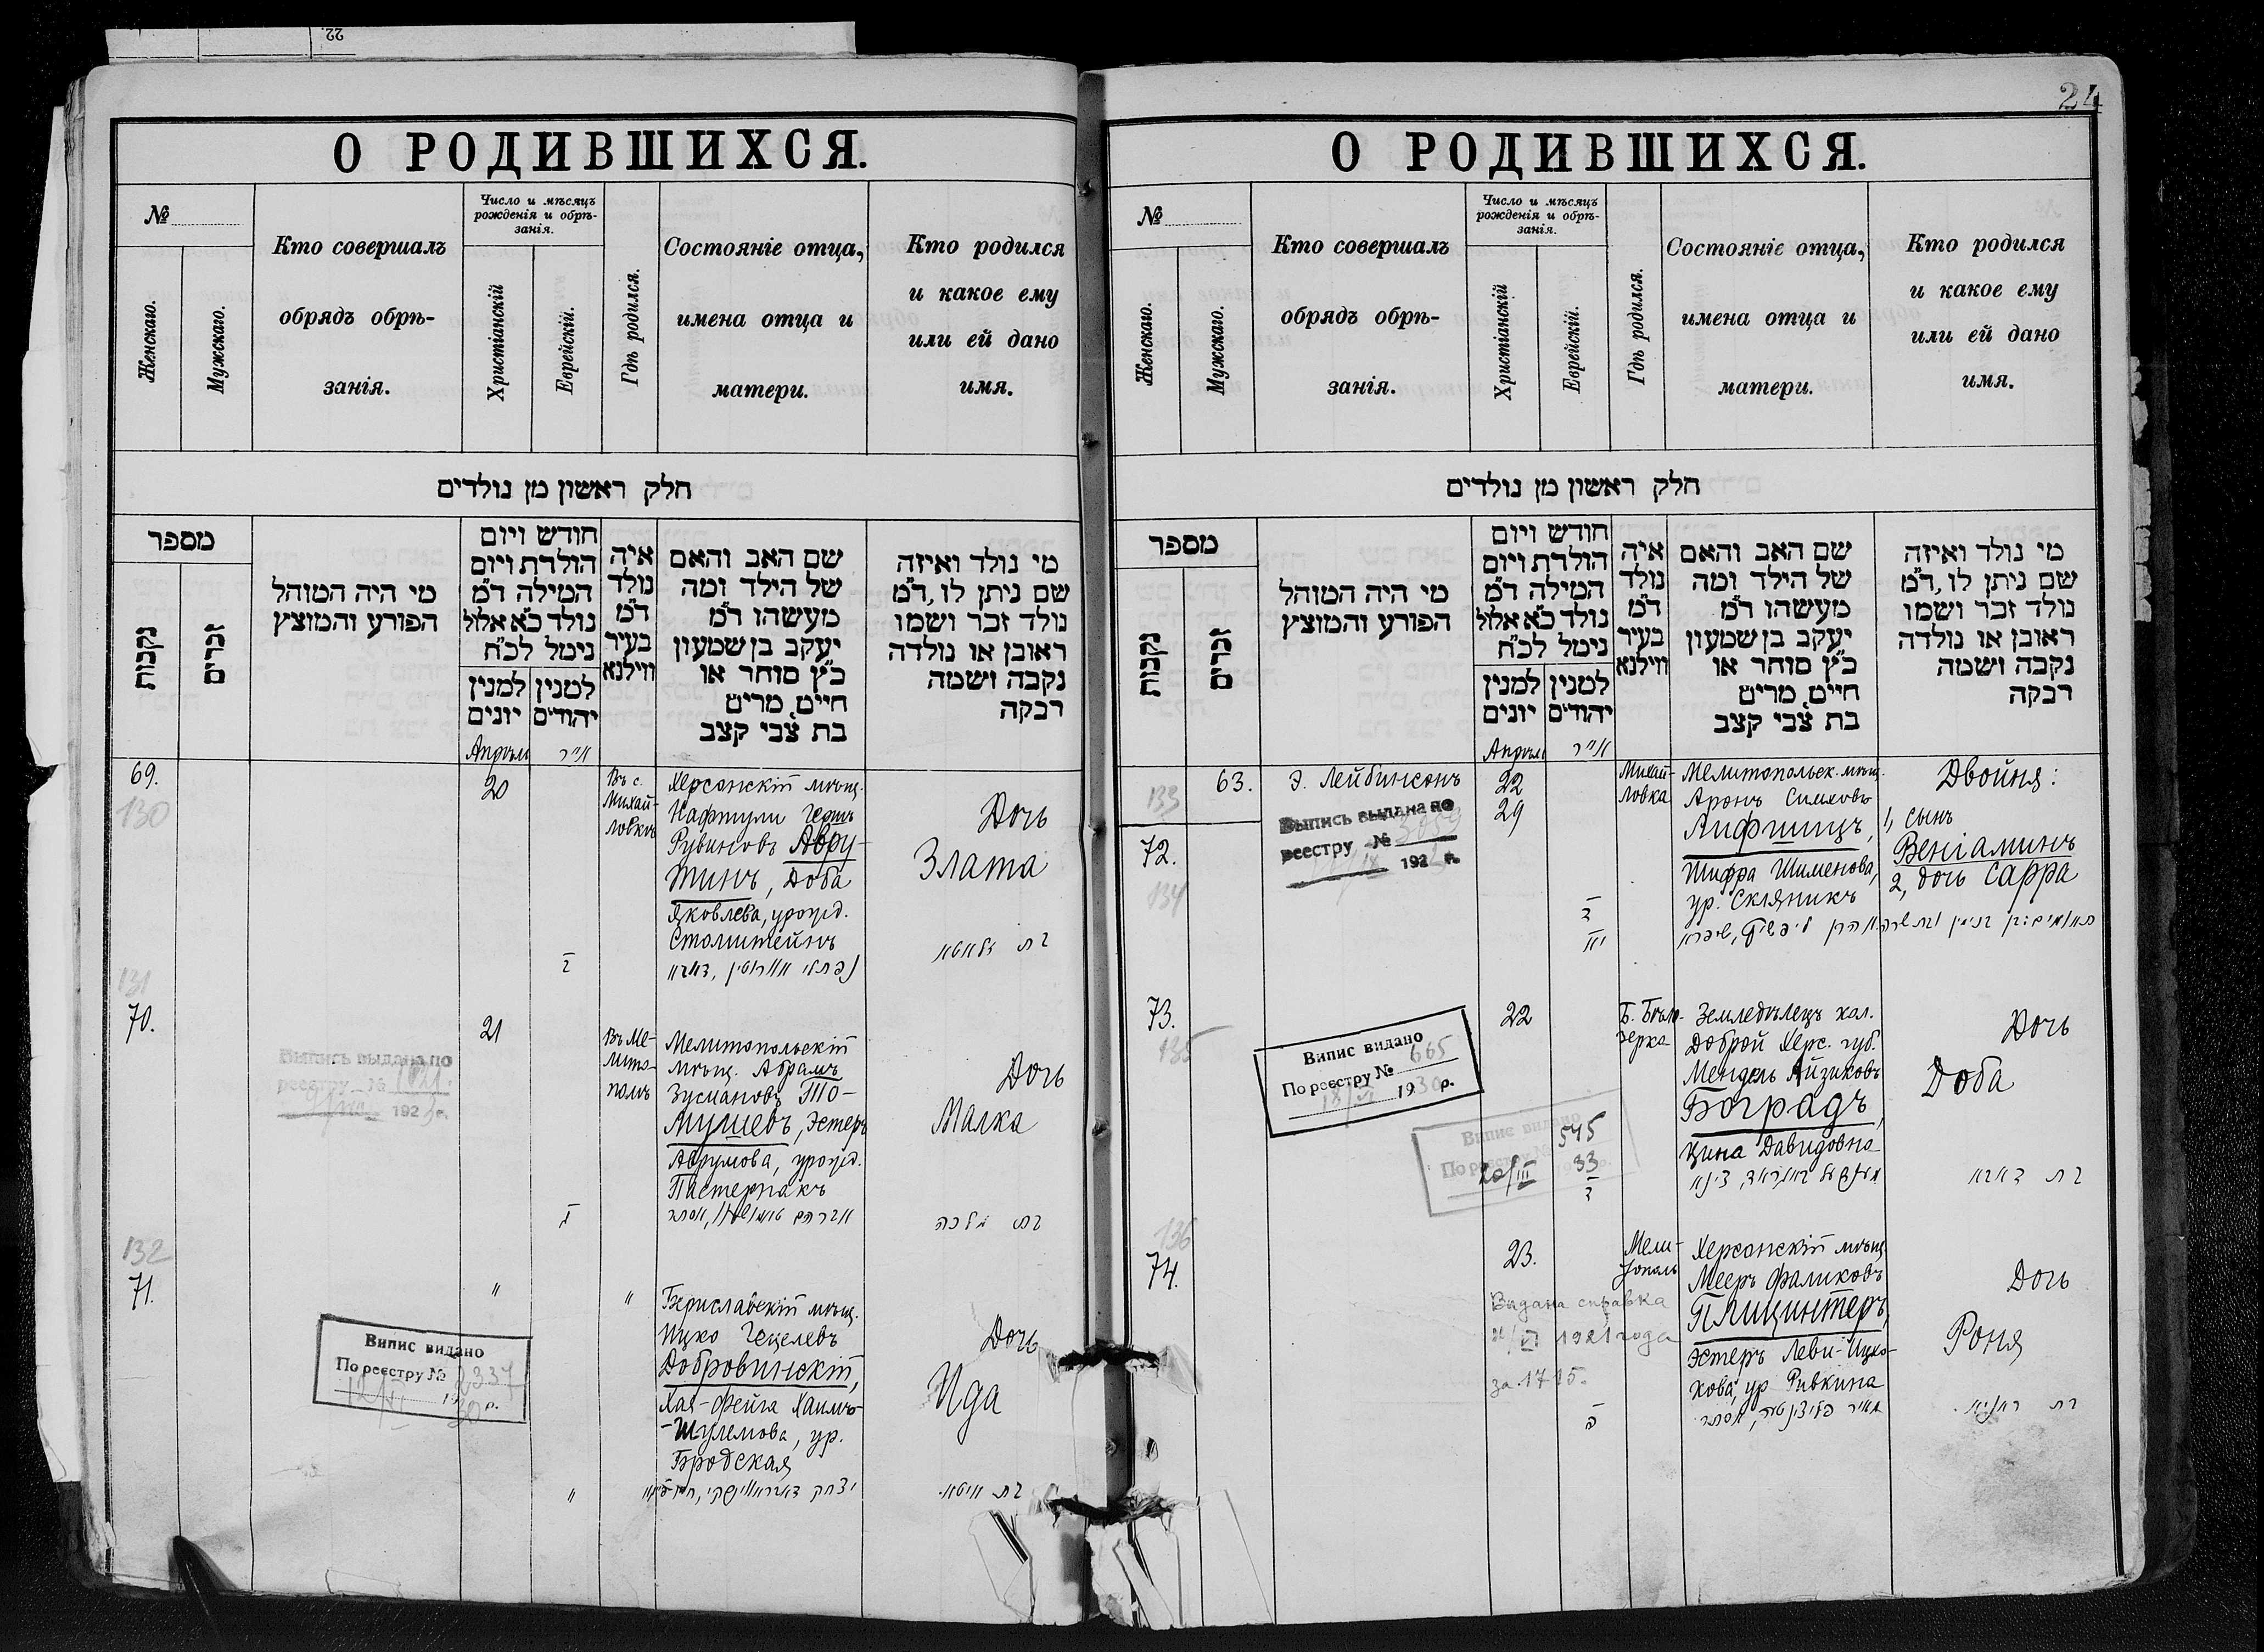 22.
О РОДИВШИХСЯ.
№
Женскаго.
Мужскаго.
Кто совершалъ
обрядъ обрѣ-
занія.
Число и мѣсяцъ
рожденія и обрѣ-
занія.
Христіанскій
Еврейскій.
Гдѣ родился.
Состояніе отца,
имена отца и
матери.
Кто родился
и какое ему
или ей дано
имя.
חלק ראשון מן נולדים
מספר
נקבות
זכרים
מי היה המוהל
הפורע והמוצץ
חודש ויום
הולדת ויום
המילה ד״מ
נולד כ״א אלול
נימל לכ״ח
למנין
יונים
למנין
יהודים
איה
נולד
ד״מ
בעיר
ווילנא
שם האב והאם
של הילד ומה
מעשהו ד״מ
יעקב בן שמעון
כ״ץ סוחר או
חייט, מרים
בת צבי קצב
מי נולד ואיזה
שם ניתן לו, ד״מ
נולד זכר ושמו
ראובן או נולדה
נקבה ושמה
רבקה
Апрѣль
אייר
69.
130
20
Въ с.
Михай-
ловкѣ
Херсонскій мѣщ.
Нафтули Герш
Рувиновъ Авру-
тинъ, Доба
Яковлева, урожд.
Столштейнъ
Дочь
Злата
ב
נפתלי אוורוטין, דאבא
בת זלאטא
131
70.
Выпись выдана по
реестру №
192 г.
21
Въ Ме-
лито-
полѣ
Мелитопольскій
мѣщ. Абрамъ
Зусмановъ То-
мушевъ, Эстеръ
Аврумова, урожд.
Пастернакъ
Дочь
Малка
ג
בת מלכה
132
71.
Випис видано
По реєстру № 2337
1930 р.
"
"
Бериславскій мѣщ.
Ицко Гецелевъ
Добровинскій,
Хая-Фейга Хаимъ-
-Шулемова, ур.
Бродская
Дочь
Ида
"
יצחק דאבראווינסקי, חיה פייגא
בת אידא
24
О РОДИВШИХСЯ.
№
Женскаго.
Мужскаго.
Кто совершалъ
обрядъ обрѣ-
занія.
Число и мѣсяцъ
рожденія и обрѣ-
занія.
Христіанскій
Еврейскій.
Гдѣ родился.
Состояніе отца,
имена отца и
матери.
Кто родился
и какое ему
или ей дано
имя.
חלק ראשון מן נולדים
מספר
נקבות
זכרים
מי היה המוהל
הפורע והמוצץ
חודש ויום
הולדת ויום
המילה ד״מ
נולד כ״א אלול
נימל לכ״ח
למנין
יונים
למנין
יהודים
איה
נולד
ד״מ
בעיר
ווילנא
שם האב והאם
של הילד ומה
מעשהו ד״מ
יעקב בן שמעון
כ״ץ סוחר או
חייט, מרים
בת צבי קצב
מי נולד ואיזה
שם ניתן לו, ד״מ
נולד זכר ושמו
ראובן או נולדה
נקבה ושמה
רבקה
Апрѣль
אייר
133
63.
72.
134
Э. Лейбинсонъ
Выпись выдана по
реестру № 3059
192 г.
22
29
Михай-
ловка
Мелитопольск. мѣщ.
Аронъ Симховъ
Лифшицъ,
Шифра Шименова,
ур. Скляникъ
Двойня:
1, сынъ
Веніаминъ
2, дочь Сарра
ד
יא
אהרן ליפשיץ, שיפרא
תאומים: בן בנימין ובת שרה
73.
135
Випис видано
По реєстру № 665
1930 р.
22
Б. Бѣло-
зерка
Земледѣлецъ кол.
Доброй Херс. губ.
Мендель Айзиковъ
Боградъ,
Цина Давидовна
Дочь
Доба
Випис видано
По реєстру
545
20/III 33
ד
מענדעל באגראד, צינא
בת דאבא
136
74.
23.
Мели-
тополь
Херсонскій мѣщ.
Мееръ Фаликовъ
Плицинтеръ,
Эстеръ Леви-Ицко-
хова, ур Ривкина
Дочь
Роня
Выдана справка
1921 года
за 1715.
ה
מאיר פליצינטער, אסתר
בת ראניא